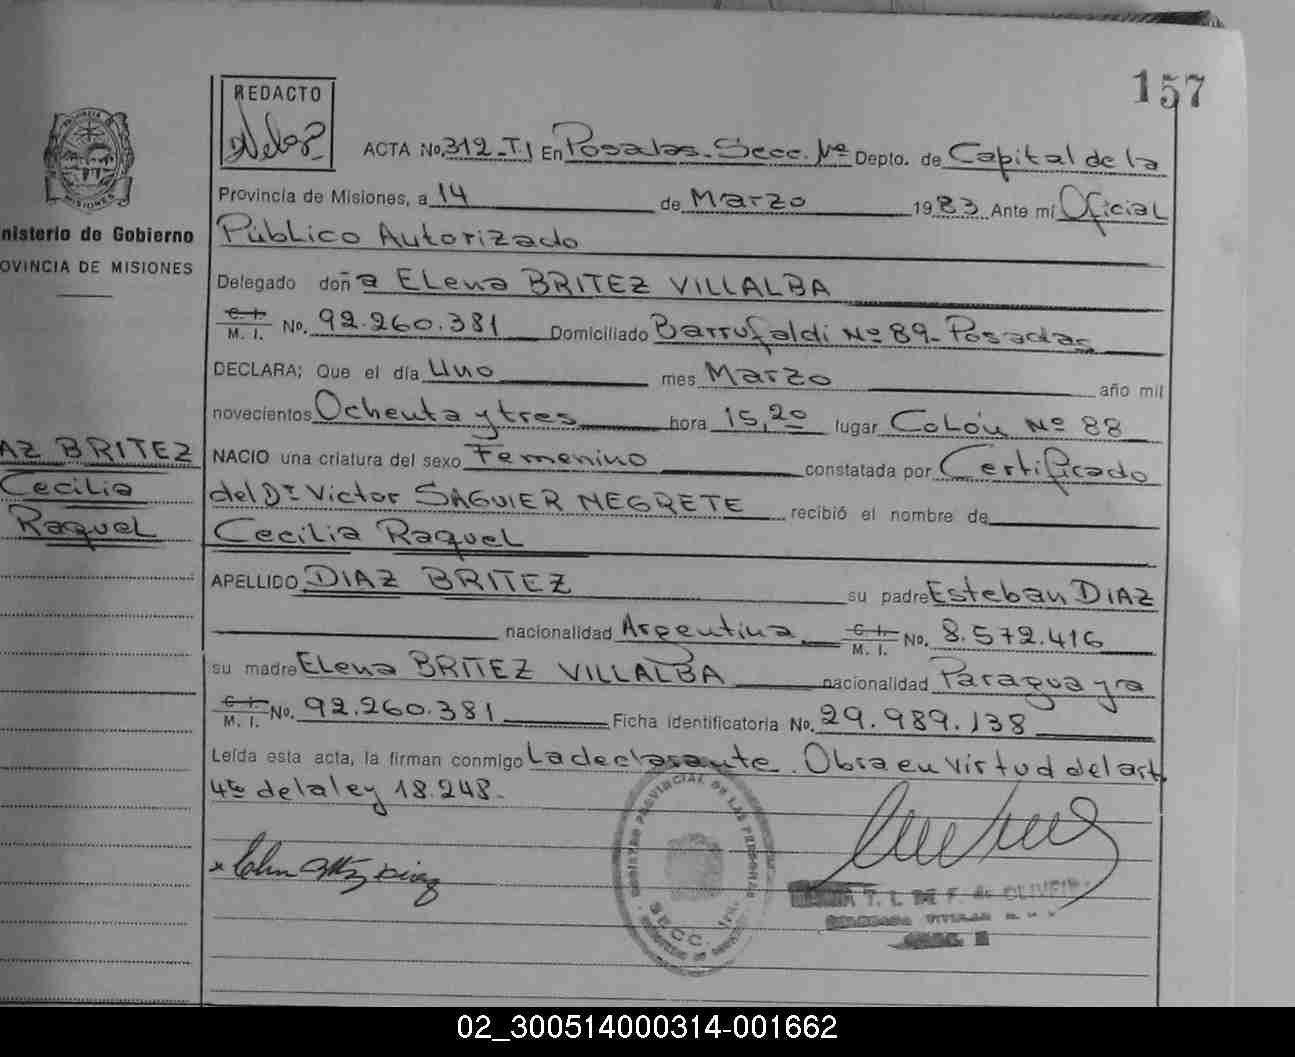 157
REDACTO
ACTA No. 312-T.I En Posadas. Secc. 1ra Depto. de Capital de la
Provincia de Misiones, a 14 de Marzo 1983. Ante mí Oficial
nisterio de Gobierno
Público Autorizado
OVINCIA DE MISIONES
Delegado doña Elena BRITEZ VILLALBA
C. I.
M. I. No. 92.260.381 Domiciliado Barrufaldi Nº 89- Posadas
DECLARA; Que el día Uno mes Marzo año mil
novecientos Ochenta y tres hora 15,20 lugar Colón Nº 88
AZ BRITEZ
NACIO una criatura del sexo Femenino constatada por Certificado
Cecilia
del Dr Victor SAGUIER NEGRETE recibió el nombre de
Raquel
Cecilia Raquel
APELLIDO DIAZ BRITEZ su padre Esteban DIAZ
nacionalidad Argentina C. I.
M. I. No. 8.572.416
su madre Elena BRITEZ VILLALBA nacionalidad Paraguaya
C. I.
M. I. No. 92.260.381 Ficha identificatoria No. 29.989.138
Leída esta acta, la firman conmigo La declarante. Obra en virtud del art.
4to de la ley 18.248.
REGISTRO PROVINCIAL DE LAS PERSONAS
SECC. 1ra.
T. I. DE F. de OLIVEIRA
02_300514000314-001662